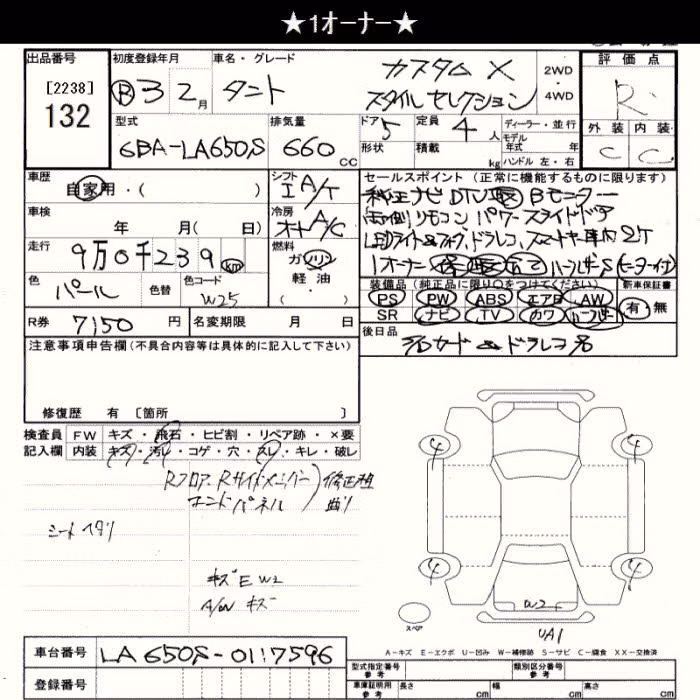 ★1オーナー★
出品番号 初度登録年月 車名・グレード 評価点
[2238] 132
R 3 2月 タント カスタムX 2WD・4WD R
スタイルセレクション
型式 排気量 ドア 定員 ディーラー・並行 外装 内装
6BA-LA650S 660cc 5 4人 モデル年式 年 C C
形状 積載 kg ハンドル 左・右
車歴 自家用・( ) シフト IA/T
セールスポイント (正常に機能するものに限ります)
純正ナビ DTV Bモニター
車検 年 月( 日) 冷房 オートA/C
両側リモコン パワースライドドア
走行 9万0千239km 燃料 ガソリン 軽油
LEDライト&フォグ、ドラレコ、スマートキー車内2ケ
1オーナー ハーフレザーS(ヒーター付)
色 パール 色替 色コード W25
装備品 (純正品に限り○をつけてください) 新車保証書
PS PW ABS エアB AW 有・無
SR ナビ TV カワ ハーフレザー
R券 7150円 名変期限 月 日
後日品 SDカード & ドラレコ
注意事項申告欄(不具合内容等は具体的に記入して下さい)
修復歴 有 〔箇所 〕
検査員 FW キズ・飛石・ヒビ割・リペア跡・×要
記入欄 内装 キズ・汚レ・コゲ・穴・スレ・キレ・破レ
Rフロア、Rサイドメンバー
エンドパネル
修正跡
曲り
シートヘタリ
キズE W2
A/W キズ
4 4
4 4
W2
スペア
UA1
A-キズ E-エクボ U-凹み W-補修跡 S-サビ C-腐食 XX-交換済
車台番号 LA650S-0117596
型式指定番号 参考 類別区分番号 参考
登録番号
車庫証明用 参考 長さ cm 幅 cm 高さ cm